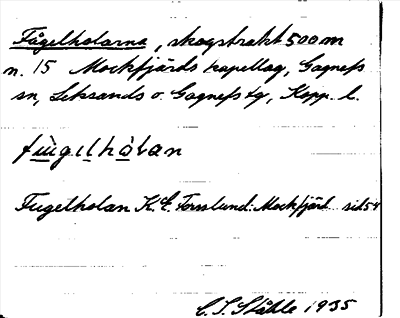 Fågelholarna, skogstrakt 500 m
n. 15 Mockfjärds kapellag, Gagnefs
sn, Leksands o. Gagnefs tg, Kopp. l.
Fugelholan K. E. Forslund: Mockfjärd sid 54
C. I. Ståhle 1935